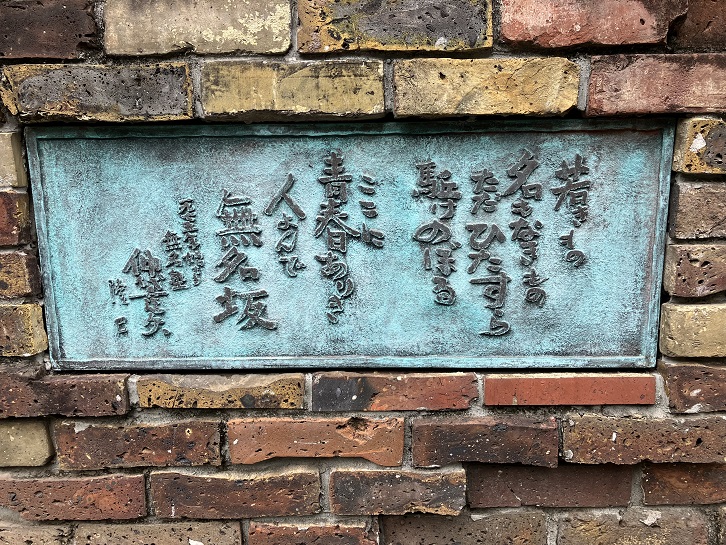 若きもの
名もなきもの
ただひたすら
駈けのぼる
ここに
青春ありき
人よんで
無名坂
無名塾
仲代達矢
隆巴